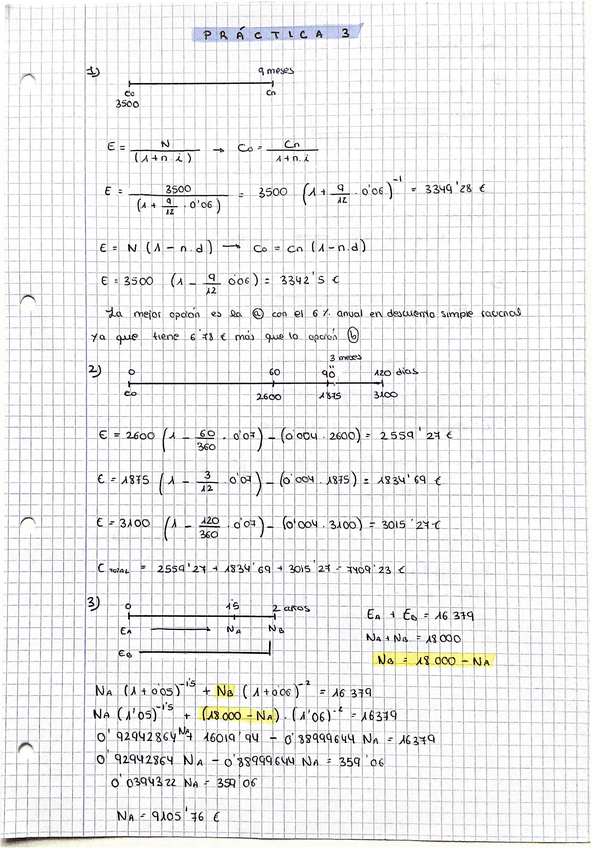 PRÁCTICA 3
1) 9 meses
Co Cn
3500
E = N / (1+n.i) → Co = Cn / 1+n.i
E = 3500 / (1 + 9/12 . 0'06) = 3500 (1 + 9/12 . 0'06)^-1 = 3349'28 €
E = N (1-n.d) → Co = Cn (1-n.d)
E = 3500 (1 - 9/12 0'06) = 3342'5 €
La mejor opción es la ⓐ con el 6% anual en descuento simple racional
ya que tiene 6'78 € más que la opción ⓑ
3 meses
2) 0 60 90 120 días
Co 2600 1875 3100
E = 2600 (1 - 60/360 . 0'07) - (0'004 . 2600) = 2559'27 €
E = 1875 (1 - 3/12 . 0'07) - (0'004 . 1875) = 1834'69 €
E = 3100 (1 - 120/360 . 0'07) - (0'004 . 3100) = 3015'27 €
C TOTAL = 2559'27 + 1834'69 + 3015'27 = 7409'23 €
3) 0 1'5 2 años
EA → NA NB
EB
EA + EB = 16 379
NA + NB = 18000
NB = 18 000 - NA
NA (1+0'05)^-1'5 + NB (1+0'06)^-2 = 16 379
NA (1'05)^-1'5 + (18.000 - NA) . (1'06)^-2 = 16379
0'92942864 NA + 16019'94 - 0'88999644 NA = 16379
0'92942864 NA - 0'88999644 NA = 359'06
0'0394322 NA = 359'06
NA = 9105'76 €